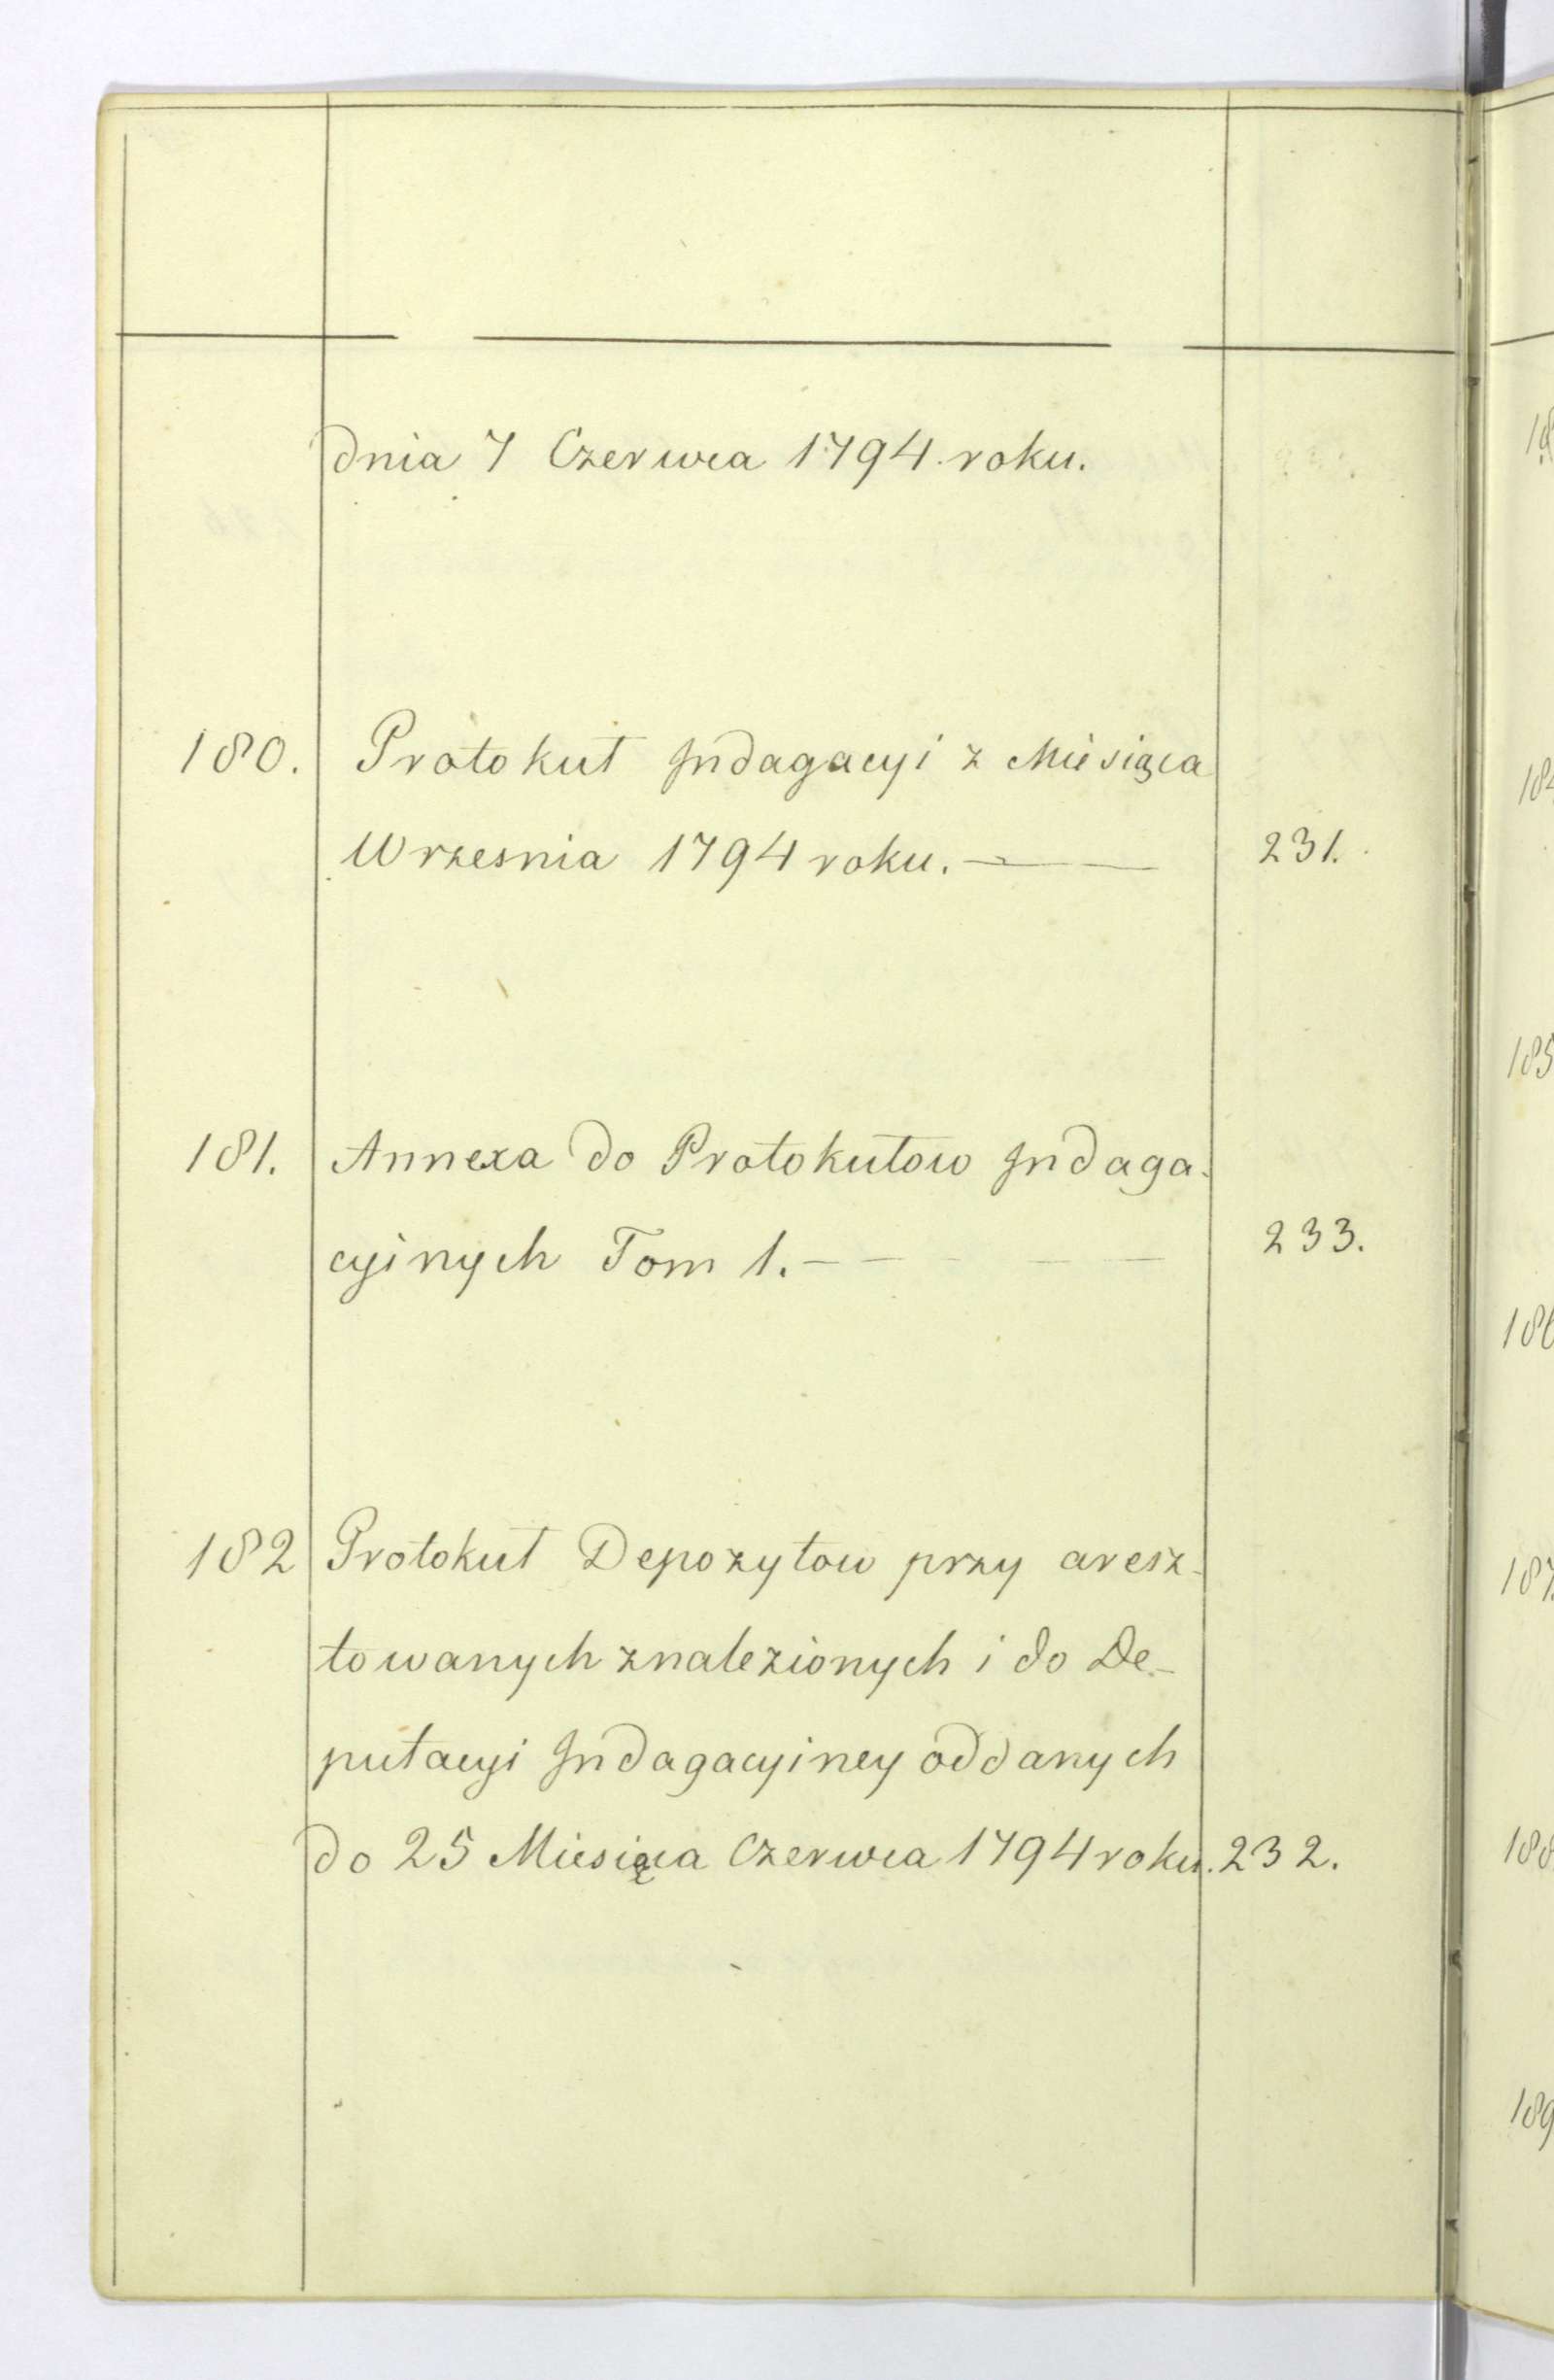 dnia 7 Czerwca 1794 roku.
180. Protokuł Indagacyi z Miesiąca
Wrzesnia 1794 roku. — 231.
181. Annexa do Protokułow Indaga-
cyinych Tom 1. — — — — — 233.
182 Protokuł Depozytow przy aresz-
towanych znalezionych i do De-
putacyi Indagacyiney oddanych
do 25 Miesiąca Czerwca 1794 roku. 232.
185
187.
189